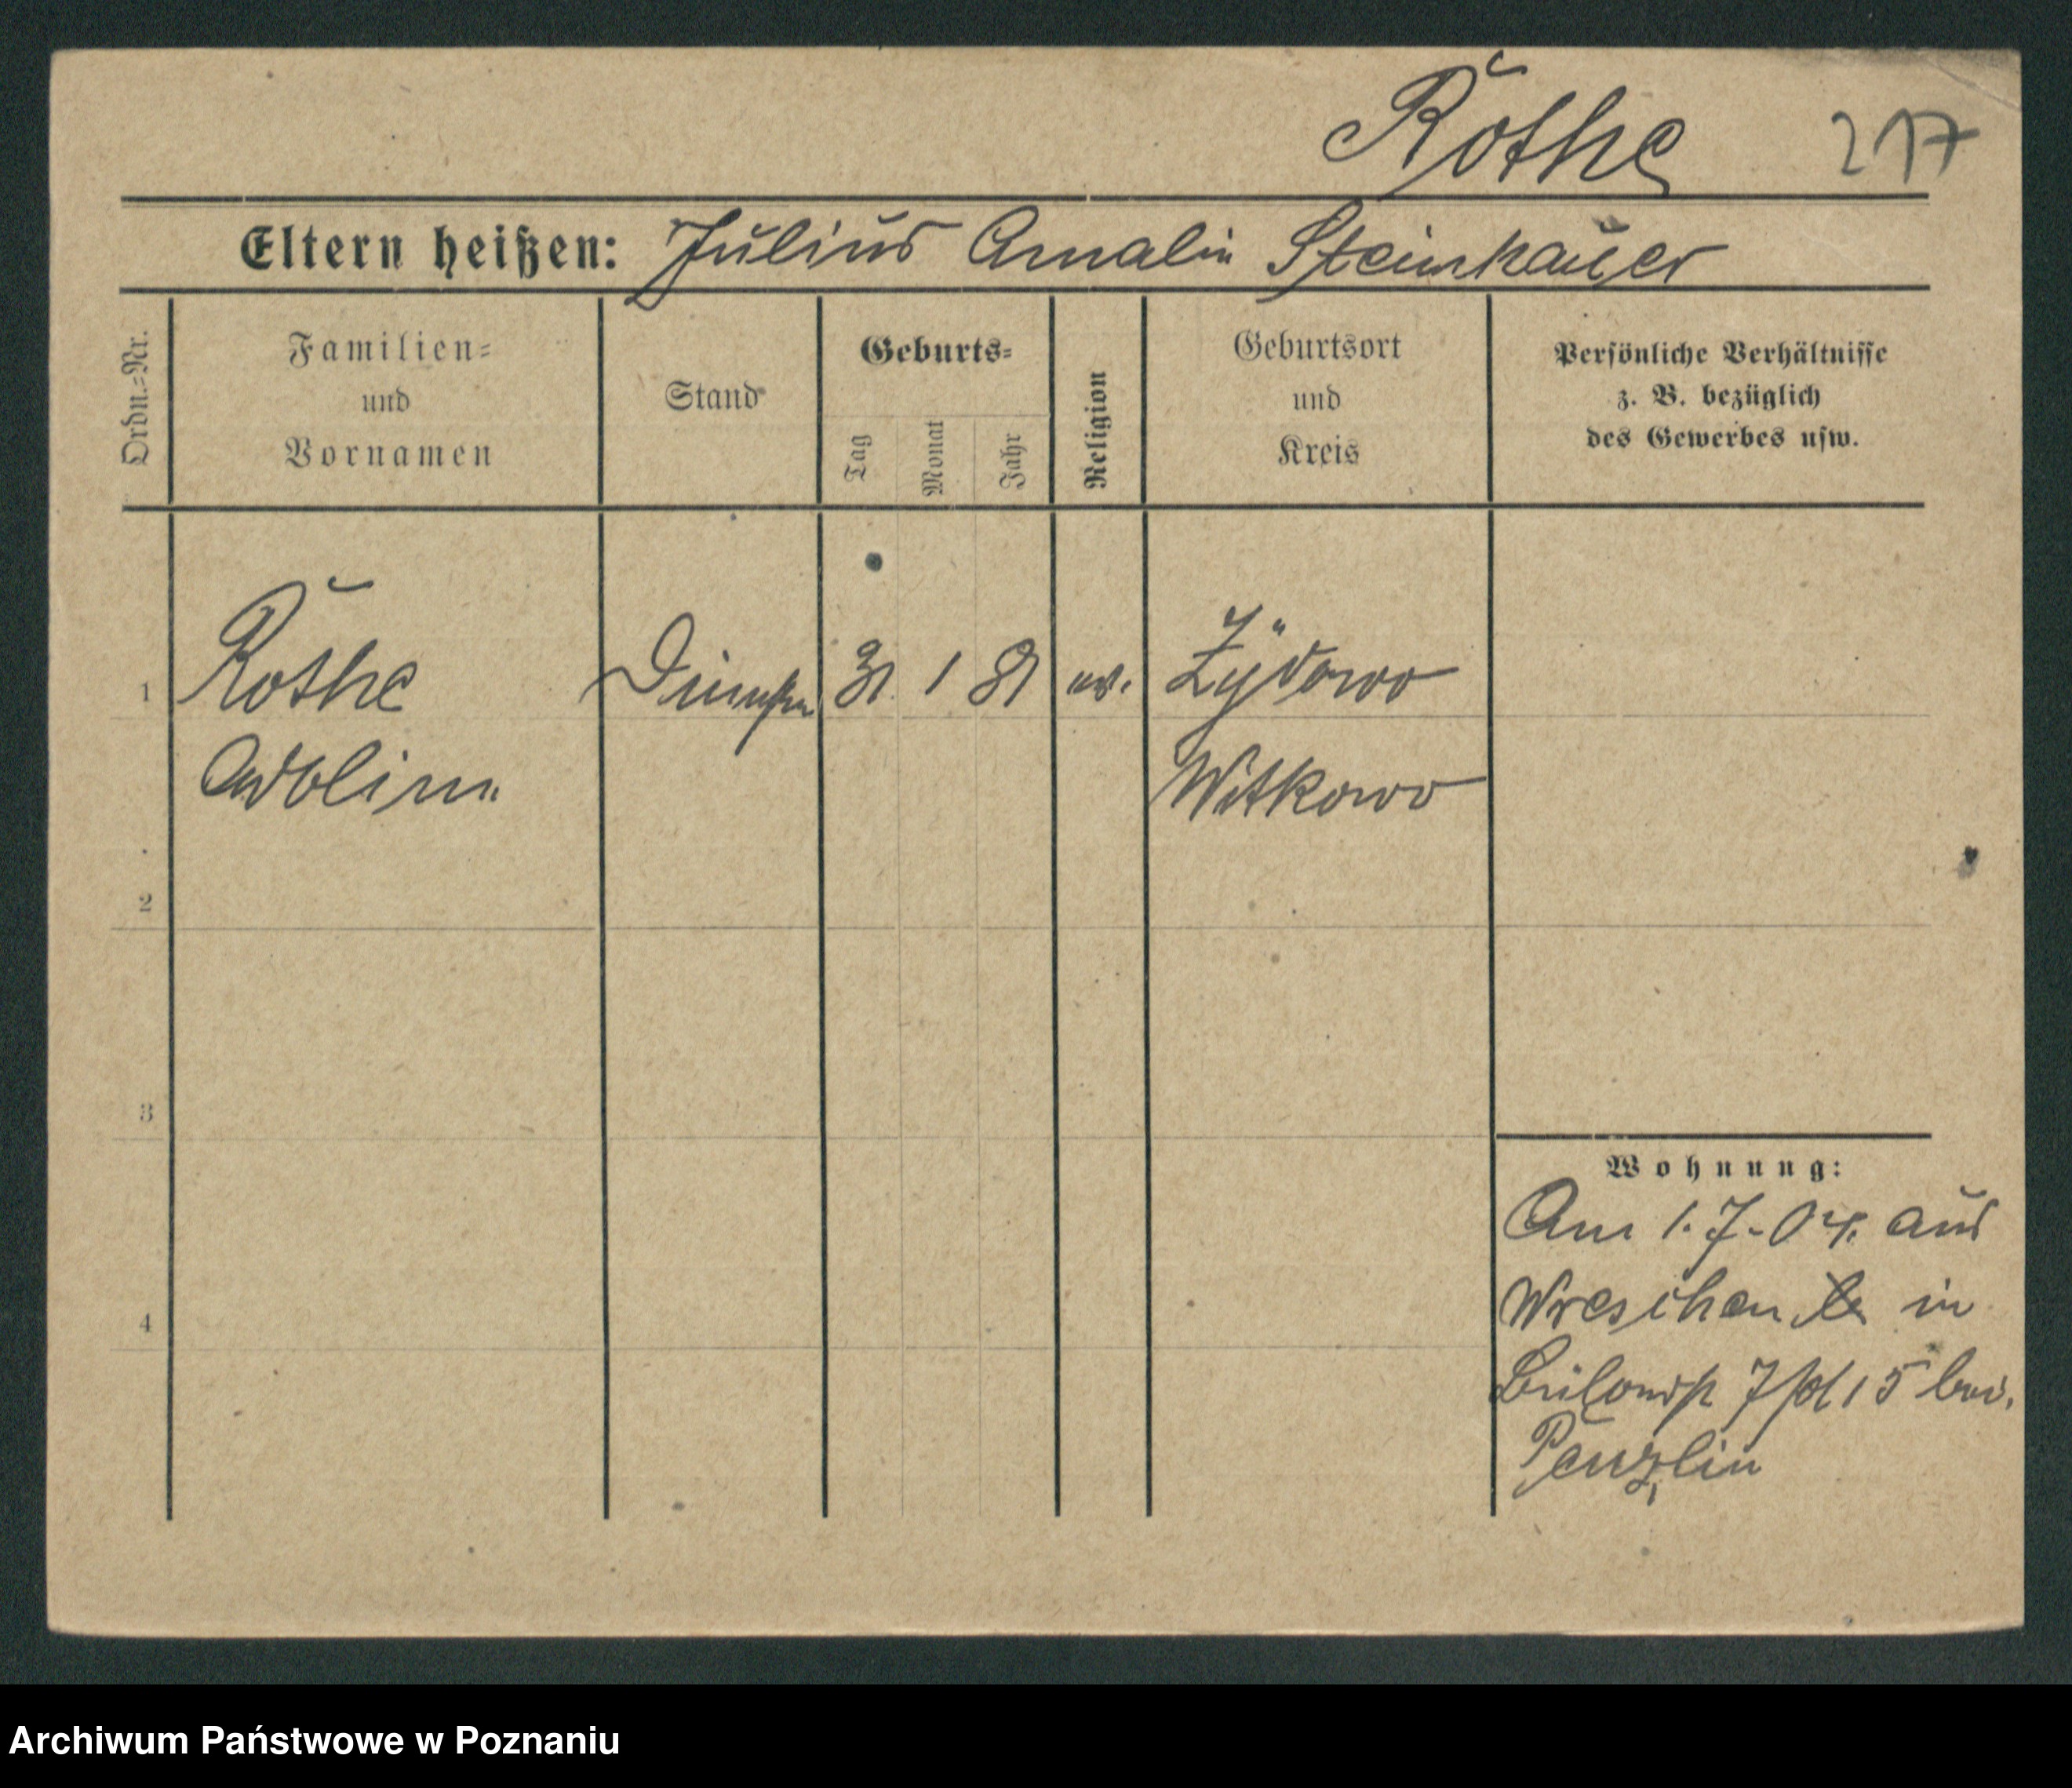 Rothe 217
Eltern heißen: Julius Amalie Steinhauer
Ordn.=Nr.
Familien=
und
Vornamen
Stand
Geburts=
Tag
Monat
Jahr
Religion
Geburtsort
und
Kreis
Persönliche Verhältnisse
z. B. bezüglich
des Gewerbes usw.
1 Rothe 31 1 81 ev. Żydowo
Witkowo
2
3
4
Wohnung:
Am 1.7.04. aus
Wreschen in
15 bei
Penzlin
Archiwum Państwowe w Poznaniu